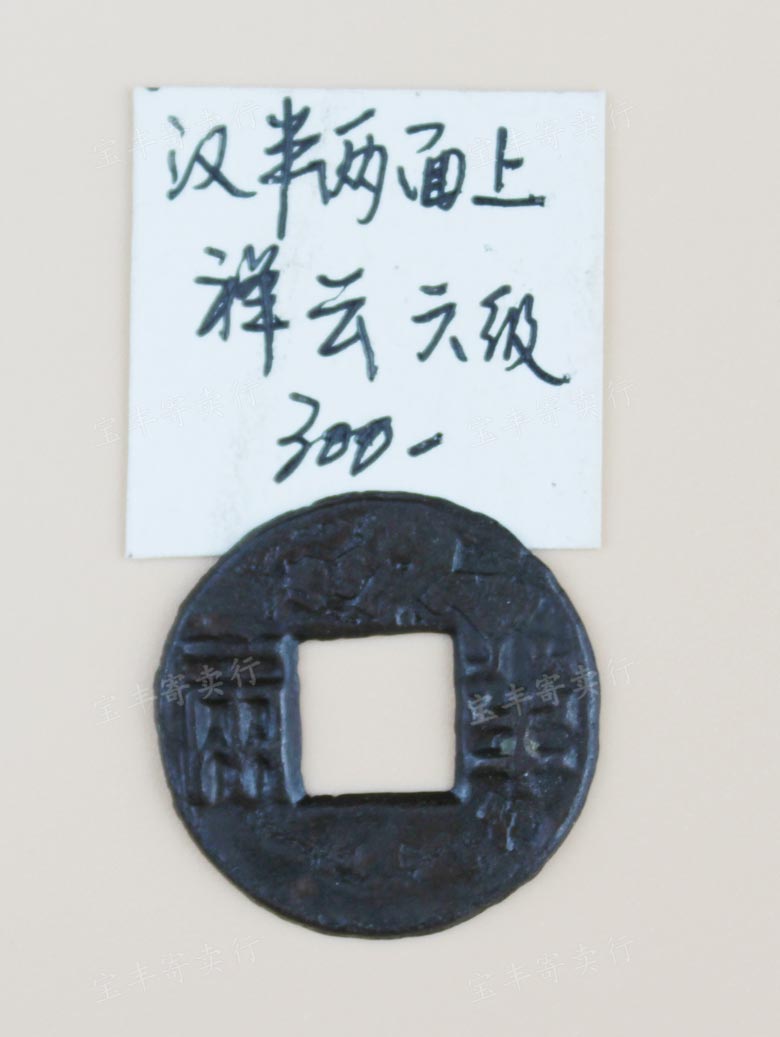 汉半两面上
祥云 六级
300-
半两
宝丰寄卖行
宝丰寄卖行
宝丰寄卖行
宝丰寄卖行
宝丰寄卖行
宝丰寄卖行
宝丰寄卖行
宝丰寄卖行